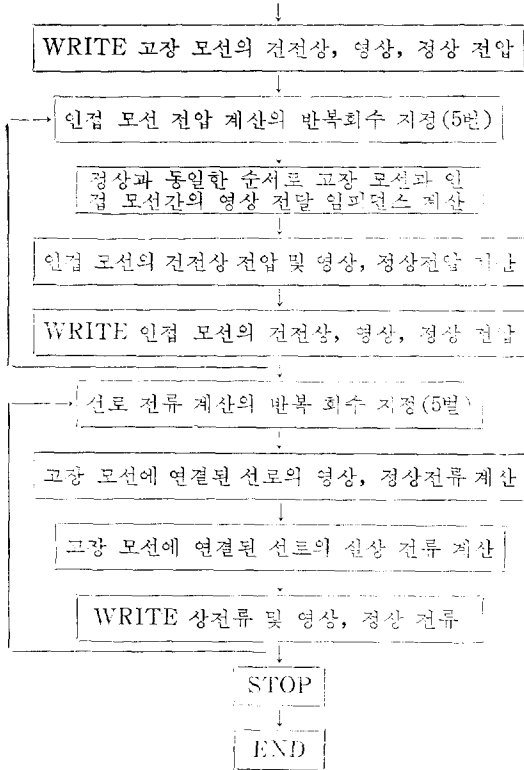 WRITE 고장 모선의 건전상, 영상, 정상 전압
인접 모선 전압 계산의 반복회수 지정(5번)
정상과 동일한 순서로 고장 모선과 인
접 모선간의 영상 전달 임피던스 계산
인접 모선의 건전상 전압 및 영상, 정상전압 계산
WRITE 인접 모선의 건전상, 영상, 정상 전압
선로 전류 계산의 반복 회수 지정(5번)
고장 모선에 연결된 선로의 영상, 정상전류 계산
고장 모선에 연결된 선로의 실상 전류 계산
WRITE 상전류 및 영상, 정상 전류
STOP
END